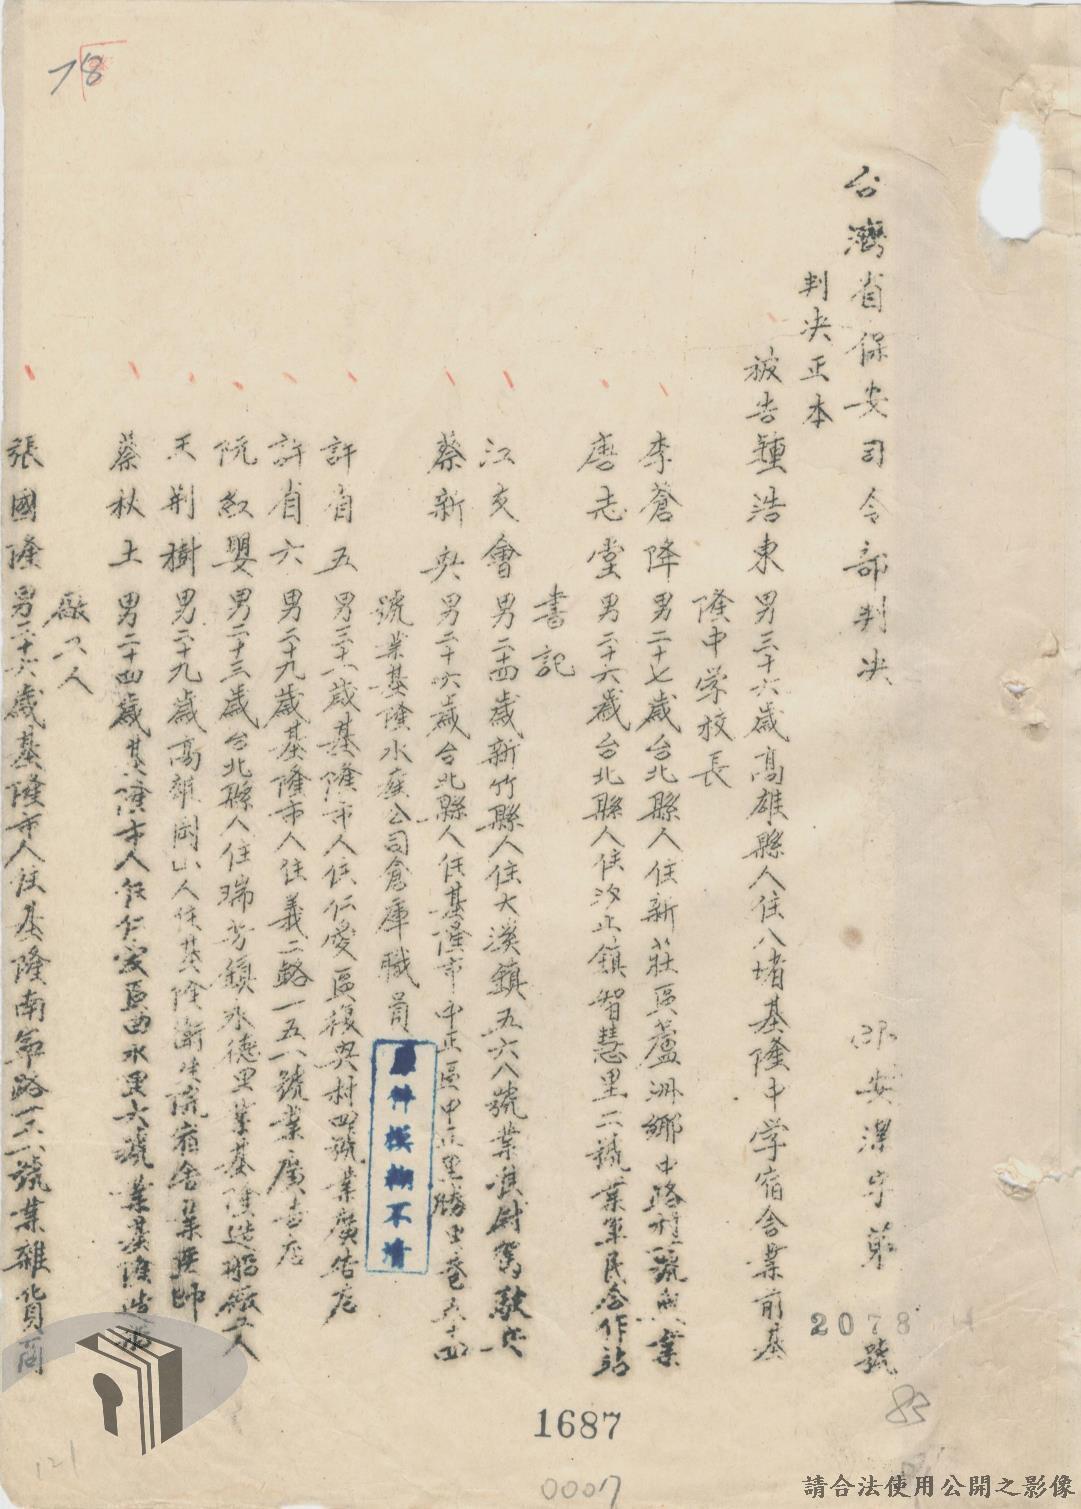 78
台灣省保安司令部判决
安潔字第2078號
判决正本
被告鍾浩東 男三十六歲高雄縣人住八堵基隆中学宿舍業前基
隆中学校長
李蒼降 男二十七歲台北縣人住新莊區蘆洲鄉中路 號 業
唐志堂 男二十六歲台北縣人住汐止鎮智慧里二號業軍民合作站
書記
江支會 男二十四歲新竹縣人住大溪鎮五六八號業準尉駕駛兵
蔡新興 男二十六歲台北縣人住基隆市中正區中正里勝 巷六十四
號業基隆水產公司倉庫職員
許省五 男三十 歲基隆市人住仁愛區複興村四號業廣告店
許省六 男二十九歲基隆市人住義二路一五八號業廣告店
阮紅嬰 男二十三歲台北縣人住瑞芳鎮永德里業基隆造船廠工人
王荆樹 男二十九歲高雄岡山人住基隆衛生院宿舍業醫師
蔡秋土 男二十四歲基隆市人住仁愛區曲水里六號業基隆造船
廠工人
張國隆 男二十六歲基隆市人住基隆南 路 號業雜貨商
原件模糊不清
1687
0007
83
121
請合法使用公開之影像